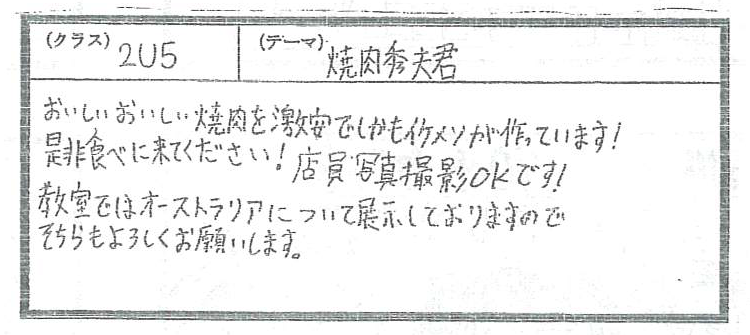 (クラス) 2U5 (テーマ) 焼肉秀夫君
おいしいおいしい焼肉を激安でしかもイケメンが作っています!
是非食べに来てください! 店員写真撮影OKです!
教室ではオーストラリアについて展示しておりますので
そちらもよろしくお願いします。